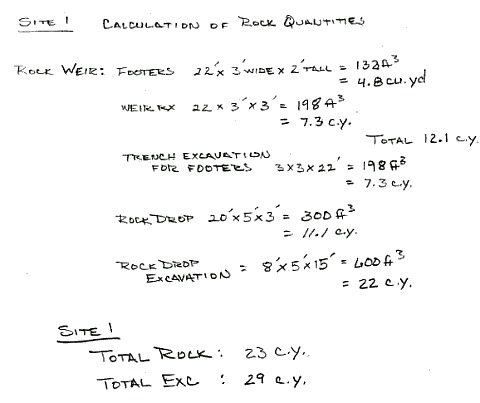 SITE 1 CALCULATION OF ROCK QUANTITIES
ROCK WEIR: FOOTERS 22' x 3' WIDE x 2' TALL = 132 ft³
= 4.8 cu. yd
WEIR RX 22 x 3' x 3' = 198 ft³
= 7.3 c.y.
TOTAL 12.1 c.y.
TRENCH EXCAVATION
FOR FOOTERS 3 x 3 x 22' = 198 ft³
= 7.3 c.y.
ROCK DROP 20' x 5' x 3' = 300 ft³
= 11.1 c.y.
ROCK DROP
EXCAVATION = 8' x 5' x 15' = 600 ft³
= 22 c.y.
SITE 1
TOTAL ROCK: 23 c.y.
TOTAL EXC : 29 c.y.